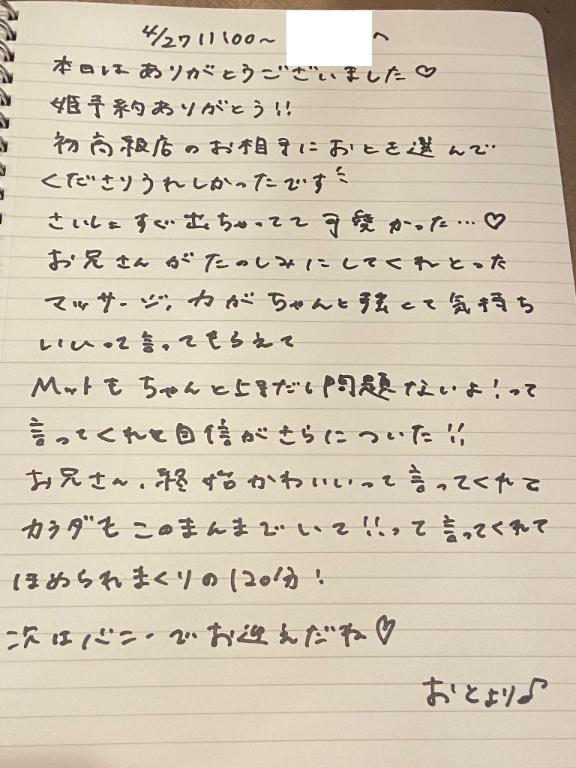 4/27 11:00〜 へ
本日はありがとうございました♡
姫予約ありがとう!!
初高級店のお相手におとを選んで
くださりうれしかったです
さいしょすぐ出ちゃってて可愛かった…♡
お兄さんがたのしみにしてくれとった
マッサージ、力がちゃんと強くて気持ち
いいって言ってもらえて
Mットもちゃんと上手だし問題ないよ!って
言ってくれて自信がさらについた!!
お兄さん、終始かわいいって言ってくれて
カラダもこのまんまでいて!!って言ってくれて
ほめられまくりの120分!
次はバニーでお迎えだね♡
おとより♪